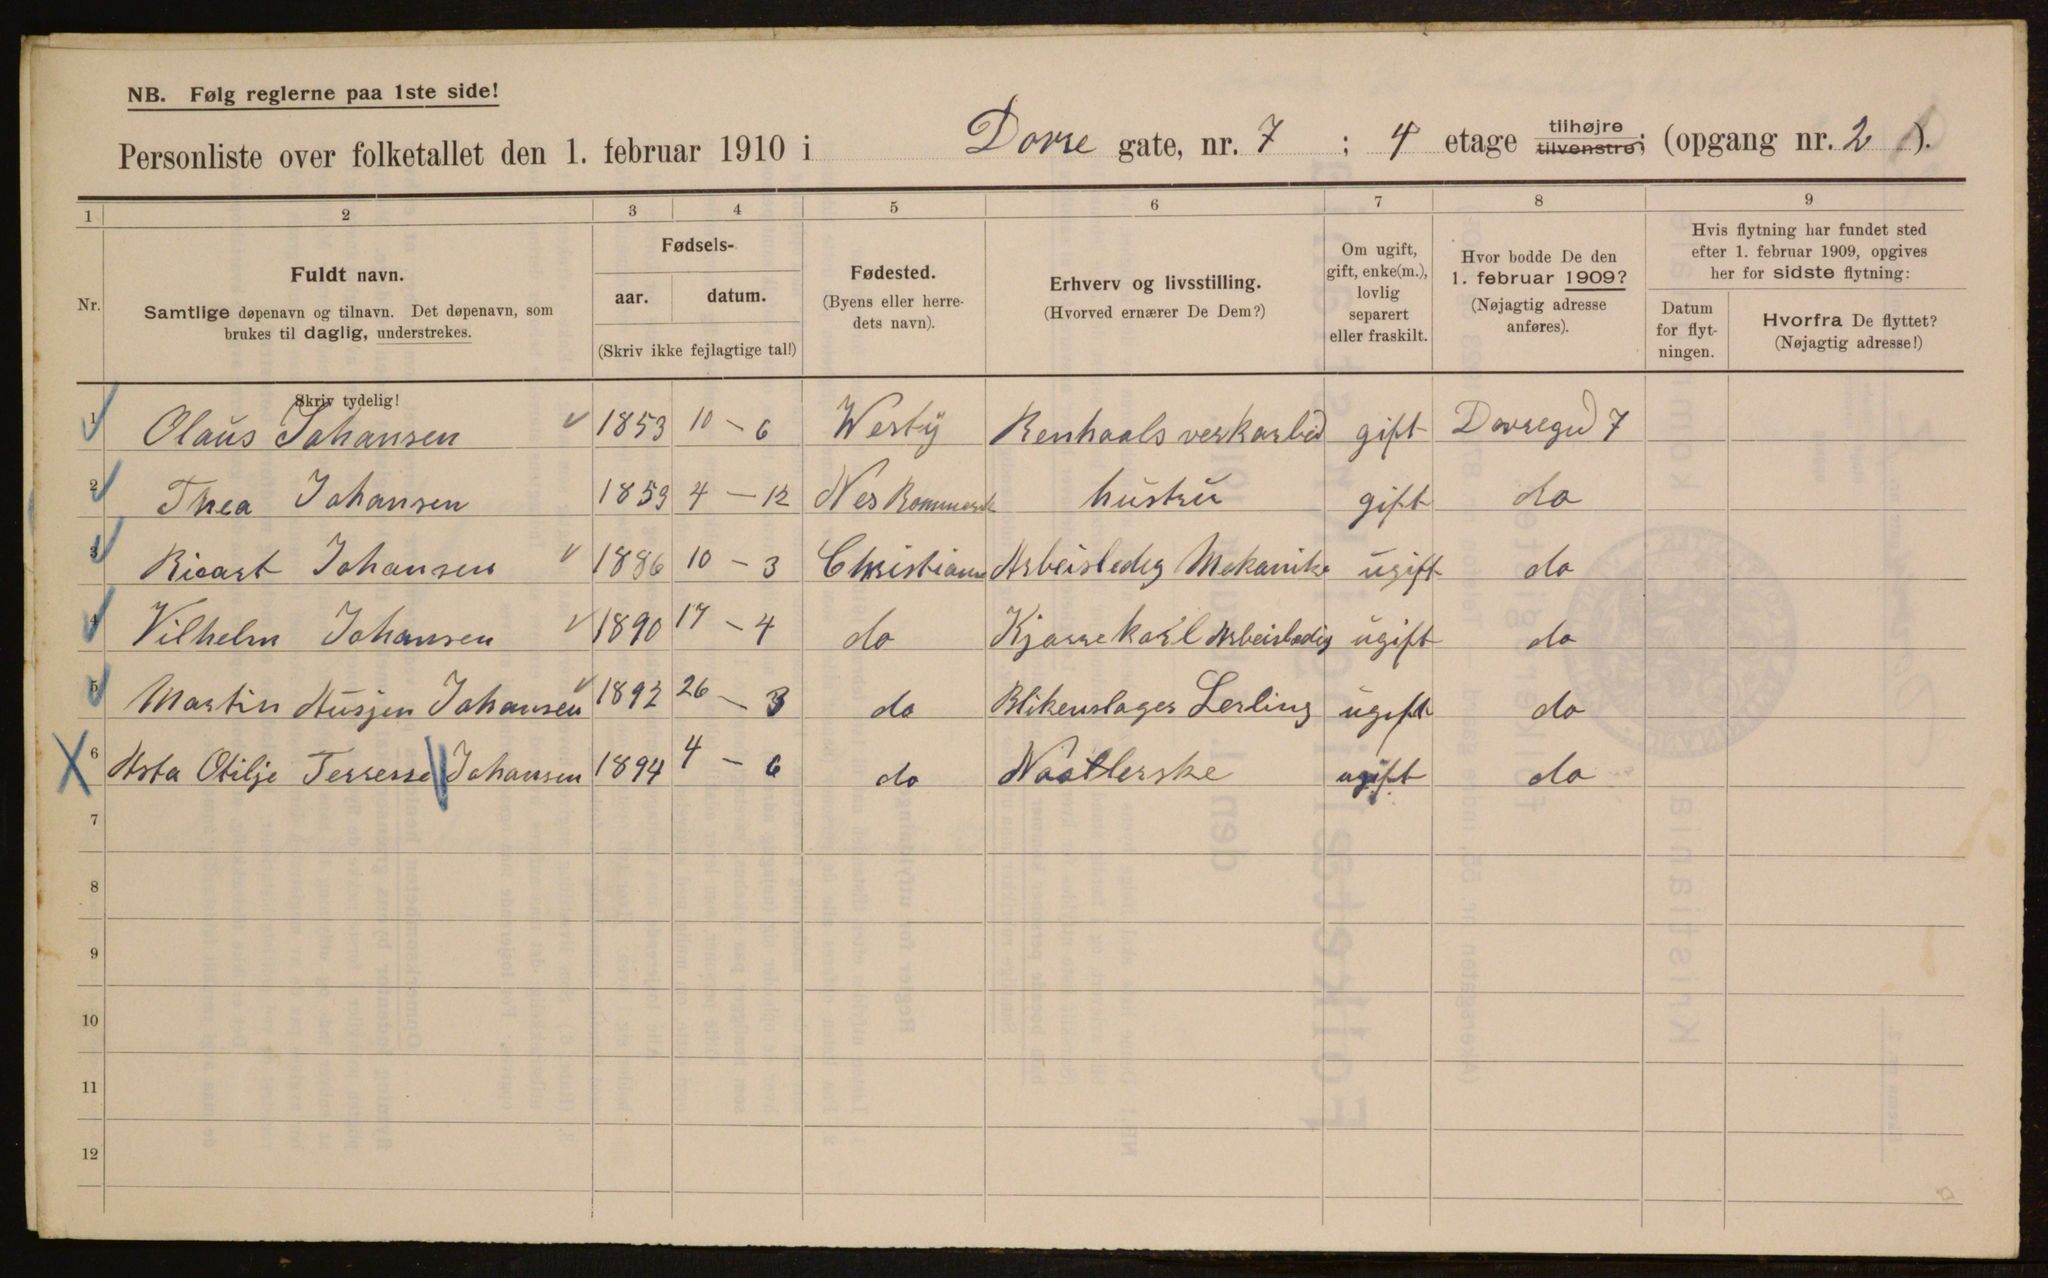 NB. Følg reglerne paa 1ste side!
Personliste over folketallet den 1. februar 1910 i Dovre gate, nr. 7 ; 4 etage tilhøjre tilvenstre; (opgang nr. 2 ).
1 2 3 4 5 6 7 8 9
Nr.
Fuldt navn.
Samtlige døpenavn og tilnavn. Det døpenavn, som
brukes til daglig, understrekes.
Fødsels-
aar. datum.
(Skriv ikke fejlagtige tal!)
Fødested.
(Byens eller herre-
dets navn).
Erhverv og livsstilling.
(Hvorved ernærer De Dem?)
Om ugift,
gift, enke(m.),
lovlig
separert
eller fraskilt.
Hvor bodde De den
1. februar 1909?
(Nøjagtig adresse
anføres).
Hvis flytning har fundet sted
efter 1. februar 1909, opgives
her for sidste flytning:
Datum
for flyt-
ningen.
Hvorfra De flyttet?
(Nøjagtig adresse!)
Skriv tydelig!
1 Olaus Johansen 1853 10 – 6 Westy Renhaals verkarbid gift Dovregd 7
2 Thea Johansen 1859 4 – 12 Nes Rommerik hustru gift do
3 Ricart Johansen 1886 10 – 3 Christiania Arbeisledig Mekanike ugift do
4 Vilhelm Johansen 1890 17 – 4 do Kjørrekarl Arbeisledig ugift do
5 Martin Husjen Johansen 1892 26 – 3 do Blikenslager Lerling ugift do
6 Asta Otilje Terresse Johansen 1894 4 – 6 do Naatlerske ugift do
7
8
9
10
11
12